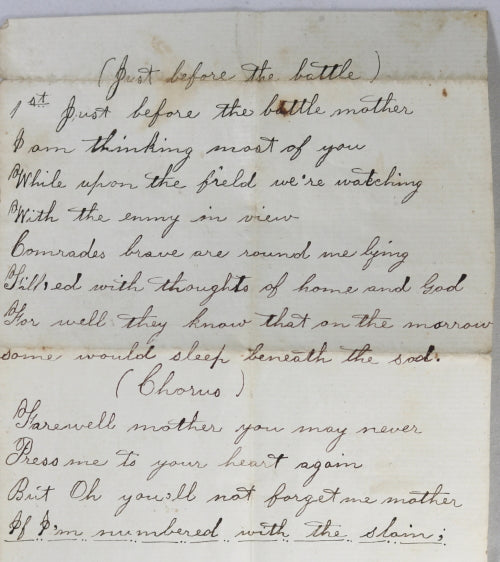 (Just before the battle)
1st Just before the battle mother
I am thinking most of you
While upon the field we're watching
With the enmy in view
Comrades brave are round me lying
Filled with thoughts of home and God
For well they know that on the morrow
some would sleep beneath the sod.
(Chorus)
Farewell mother you may never
Press me to your heart again
But Oh you'll not forget me mother
If I'm numbered with the slain;